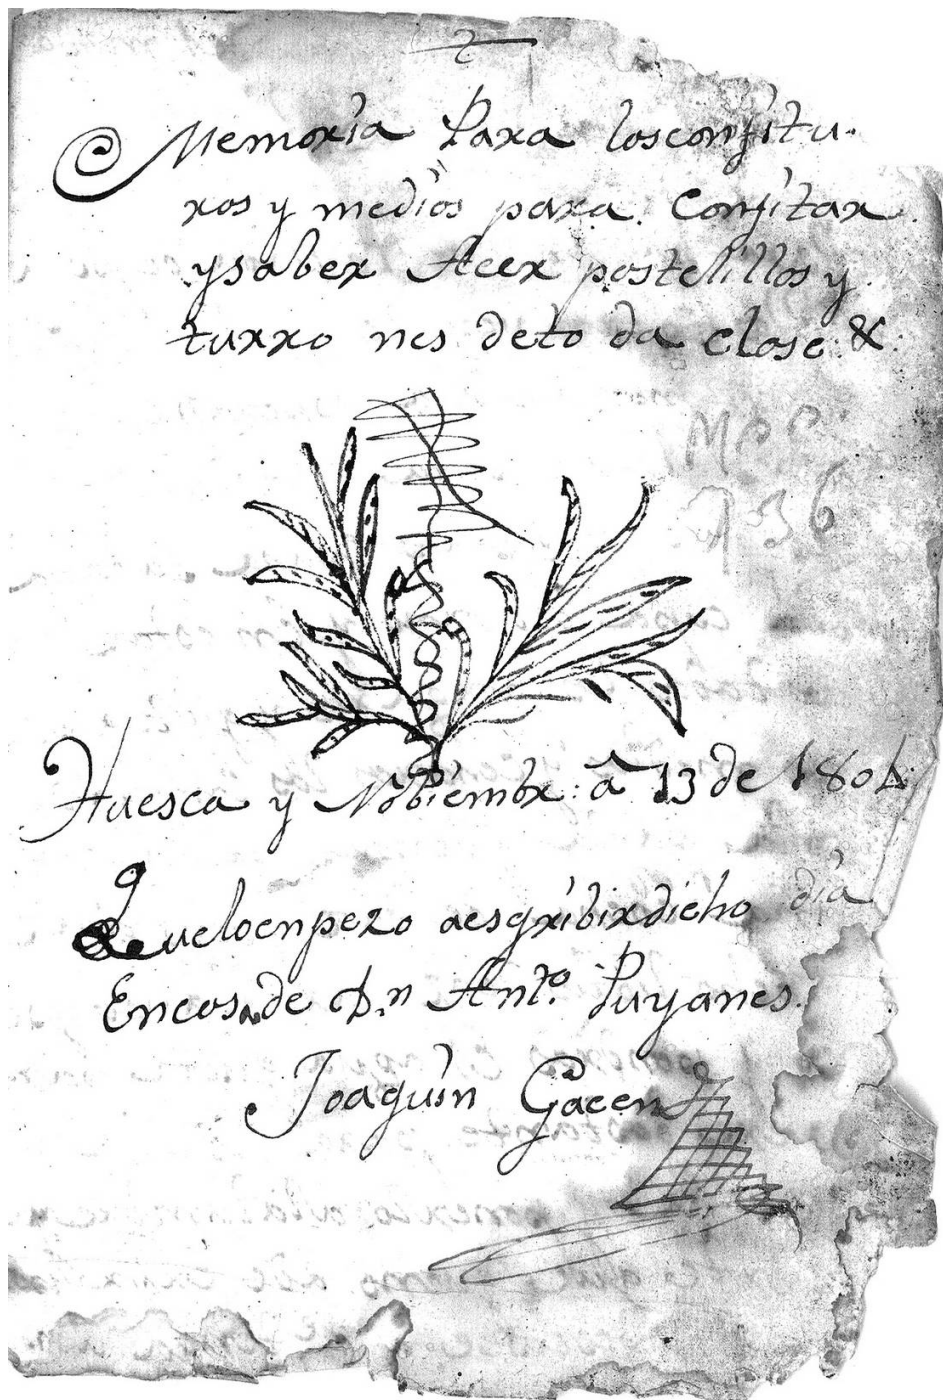 2
Memoria Para losconfitu-
ros y medios para Confitar
ysaber Acer postelillos y
turro nes deto da close &
Huesca y Nobiembr: â 13 de 1804
Q
ueloenpezo aesgribirdicho día
Encosa de Dn Anto. Puyanes.
Joaquin Gacen